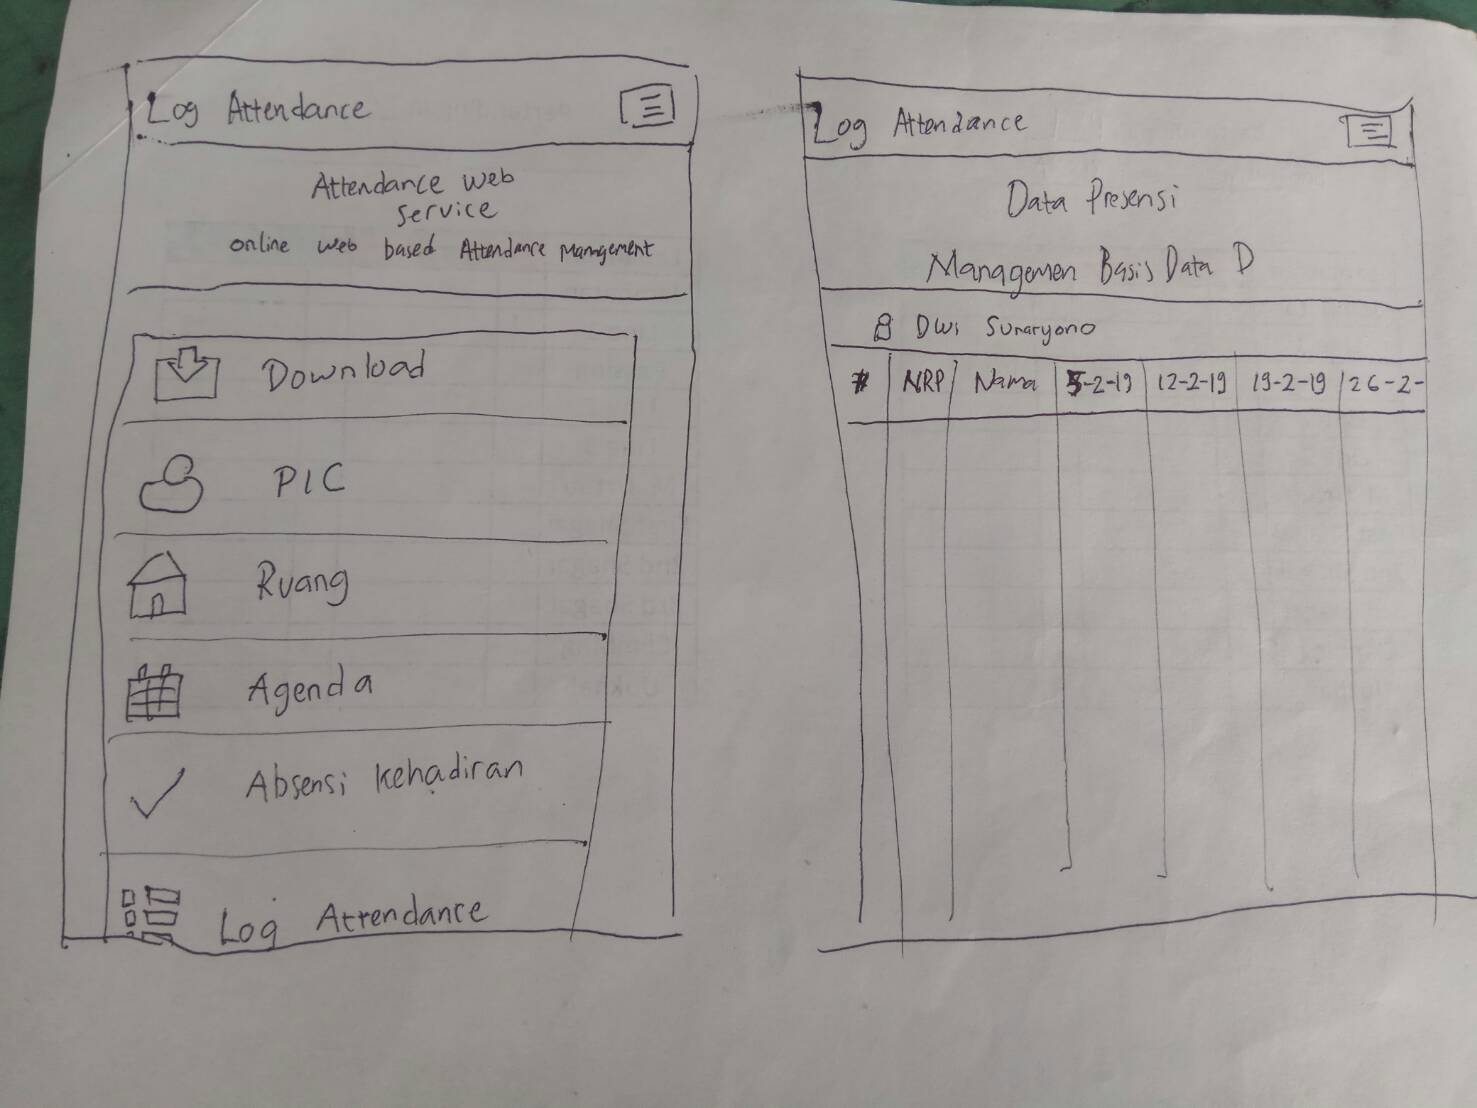 Log Attendance
Attendance web
service
online web based Attendance Management
Download
PIC
Ruang
Agenda
Absensi kehadiran
Log Attendance
Log Attendance
Data Presensi
Managemen Basis Data D
Dwi Sunaryono
# NRP Nama 5-2-19 12-2-19 19-2-19 26-2-